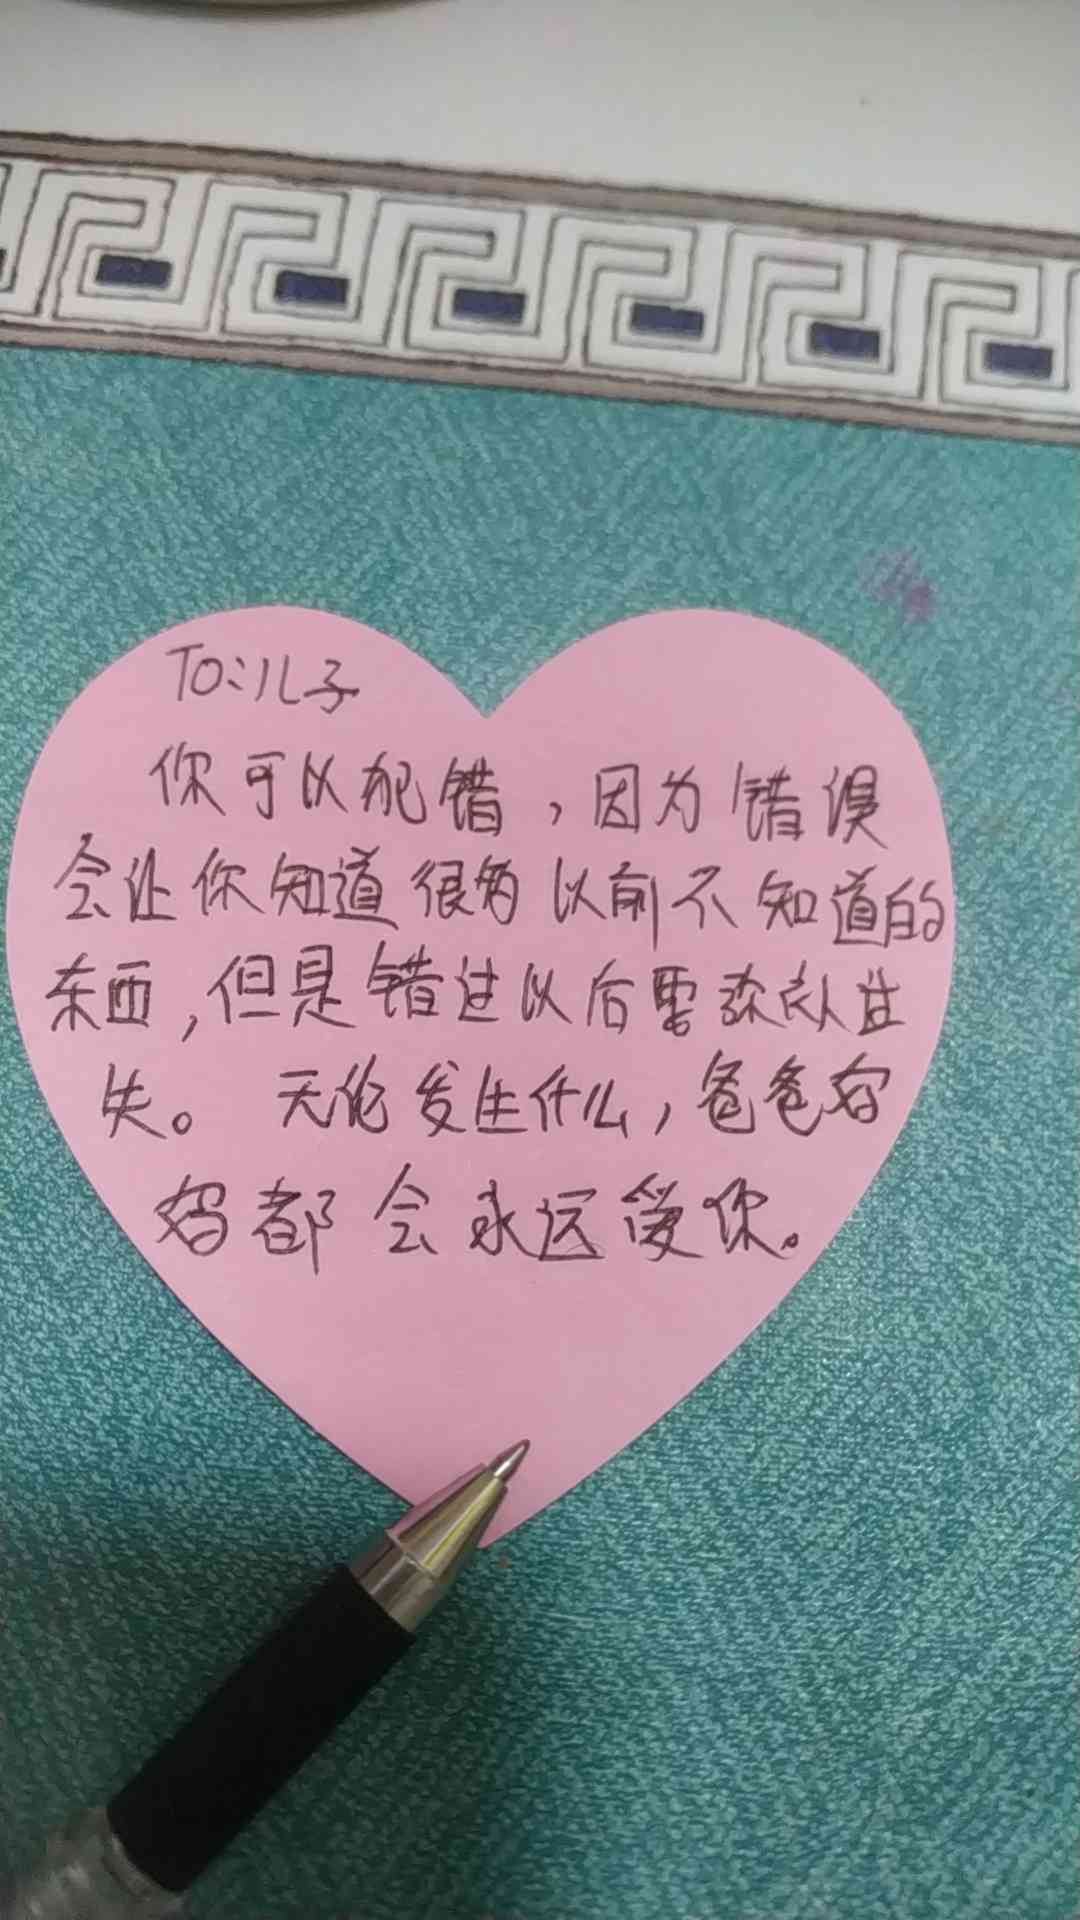 TO:儿子
你可以犯错，因为错误
会让你知道很多以前不知道的
东西，但是错过以后要承认过
失。 无论发生什么，爸爸和
妈都会永远爱你。